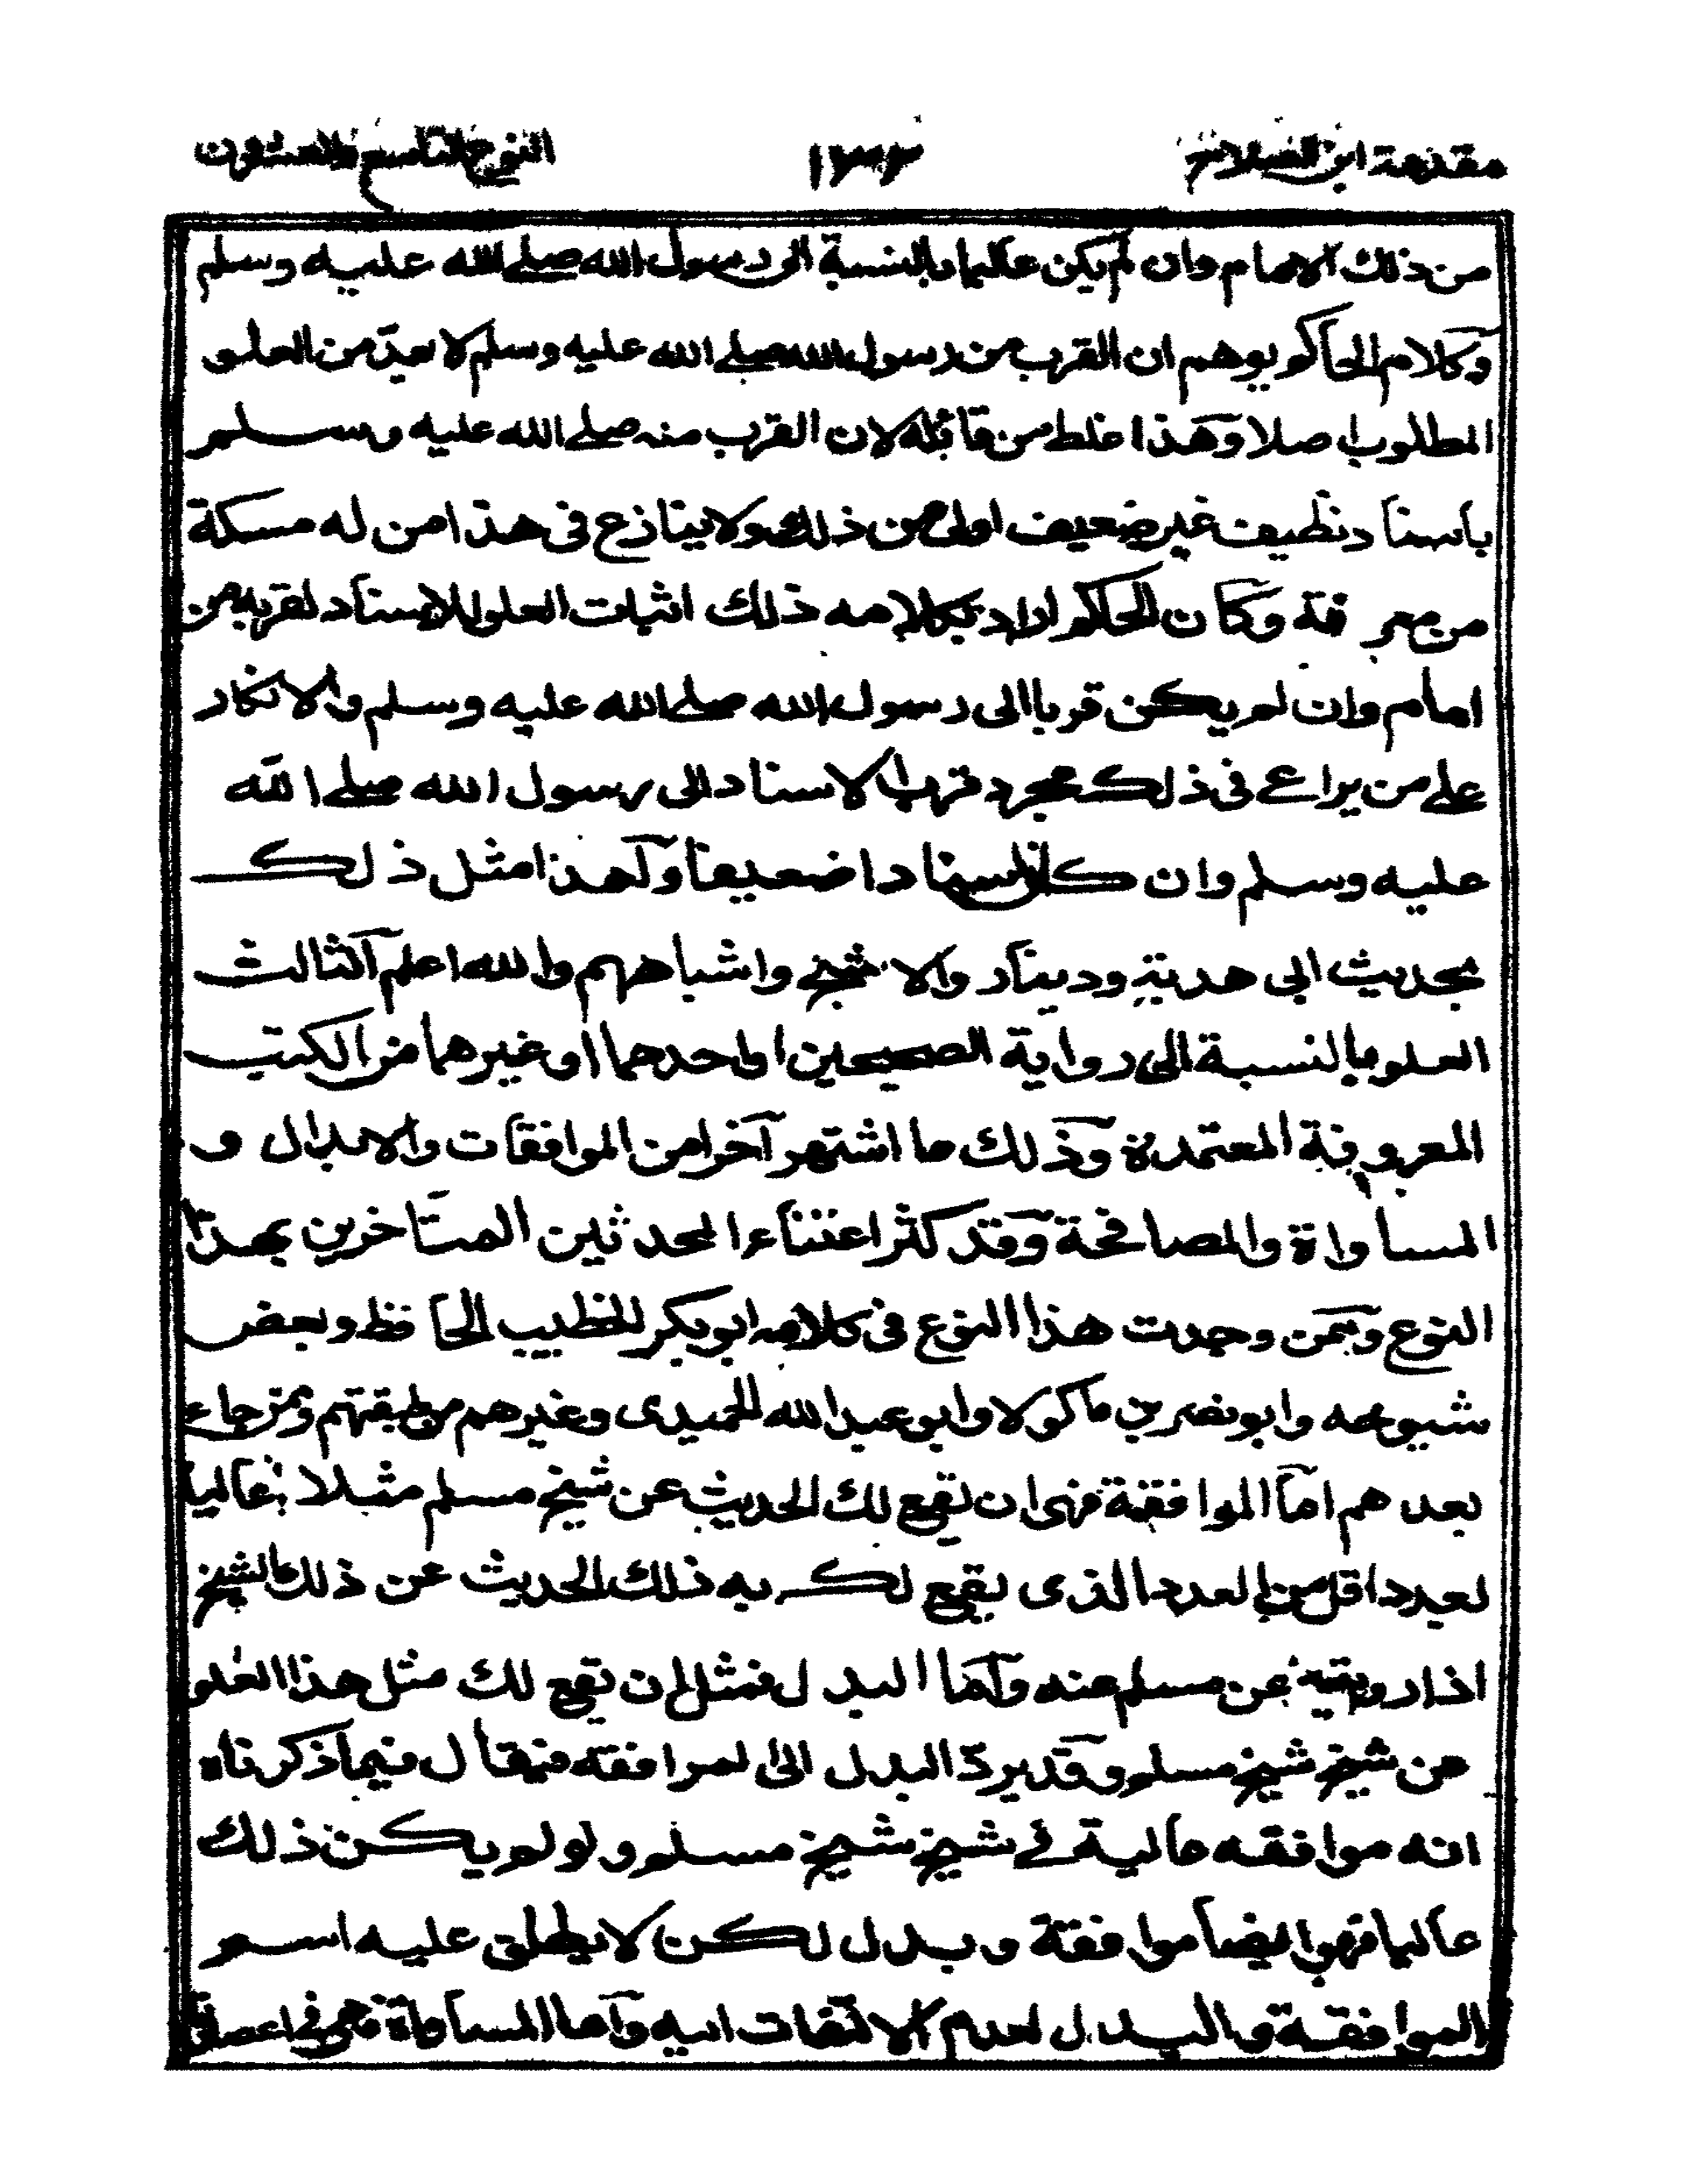 مقدمة ابن الصلاح ١٣٣ النوع التاسع والعشرون
من ذلك الامام وان لم يكن عاليا بالنسبة الى رسول الله صلے الله عليه وسلم
وكلام الحاكم يوهم ان القرب من رسول الله صلے الله عليه وسلم لا يعد من العلو
المطلوب اصلا وهذا غلط من قائله لان القرب منه صلے الله عليه وسلم
باسناد نظيف غير ضعيف اولى من ذلك ولا ينازع فى هذا من له مسكة
من معرفة وكان الحاكم اراد بكلامه ذلك اثبات العلو للاسناد لقربه من
امام وان لم يكن قربا الى رسول الله صلے الله عليه وسلم والانكار
علے من يراعے فى ذلك مجرد قرب الاسناد الى رسول الله صلے الله
عليه وسلم وان كان اسنادا ضعيفا ولهذا مثل ذلك
بحديث ابى هدبة ودينار والاشج واشباههم والله اعلم الثالث
العلو بالنسبة الى رواية الصحيحين او احدهما او غيرهما من الكتب
المعروفة المعتمدة وذلك ما اشتهر آخرا من الموافقات والابدال و
المساواة والمصافحة وقد كثر اعتناء المحدثين المتاخرين بهذا
النوع وممن وجدت هذا النوع فى كلامه ابو بكر الخطيب الحافظ وبعض
شيوخه وابو نصر بن ماكولا وابو عبد الله الحميدى وغيرهم من طبقتهم وممن جاء
بعدهم اما الموافقة فهى ان تقع لك الحديث عن شيخ مسلم مثلا عاليا
بعدد اقل من العدد الذى يقع لك به ذلك الحديث عن ذلك الشيخ
اذا رويته عن مسلم عنه واما البدل فمثل ان تقع لك مثل هذا العلو
عن شيخ شيخ مسلم وقد يرد البدل الى الموافقه فيقال فيما ذكرناه
انه موافقه عالية فے شيخ شيخ مسلم ولو لم يكن ذلك
عاليا فهو ايضا موافقة وبدل لكن لا يطلق عليه اسم
الموافقة والبدل لعدم الالتفات اليه واما المساواة فهى فى اعصارنا